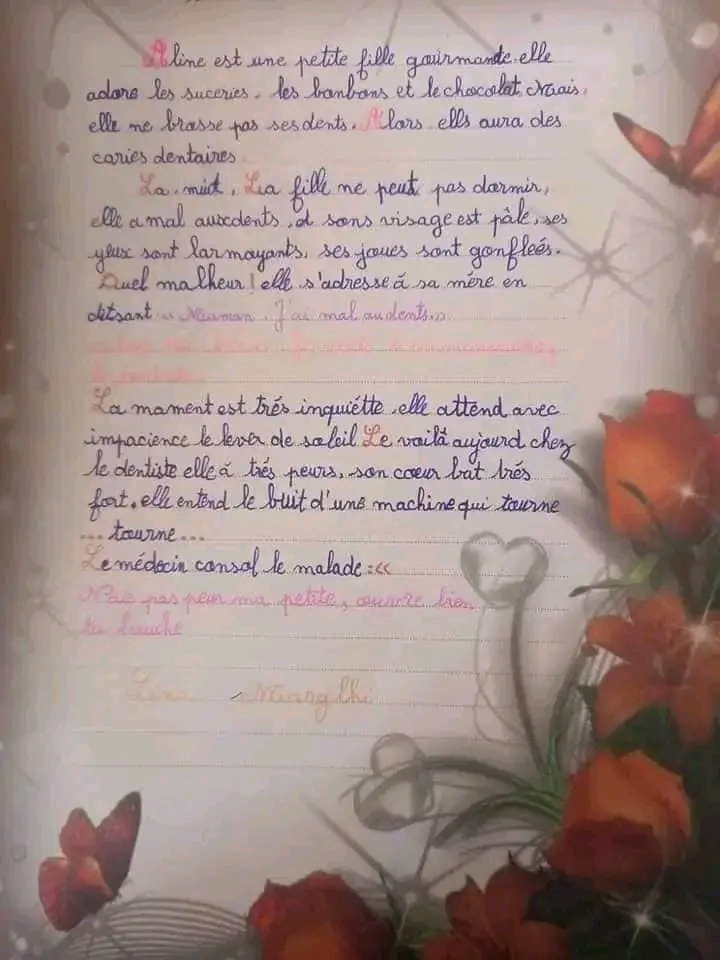 Aline est une petite fille gourmande. elle
adore les suceries, les bonbons et le chocolat. Mais,
elle ne brosse pas ses dents. Alors ells aura des
caries dentaires
La nuit, La fille ne peut pas dormir,
elle a mal auxdents, et sons visage est pâle, ses
yeux sont larmoyants, ses joues sont gonfleés.
Quel malheur! elle s'adresse á sa mére en
ditsant " Maman, J'ai mal au dents.,,
La mament est trés inquiétte, elle attend avec
impacience le lever de soleil Le voilá aujourd chez
le dentiste elle á trés peurs, son coeur bat trés
fort, elle entend le buit d'une machine qui tourne
... tourne...
Le médecin consol le malade :«
N'aie pas peur ma petite, ouvre bien
ta bouche